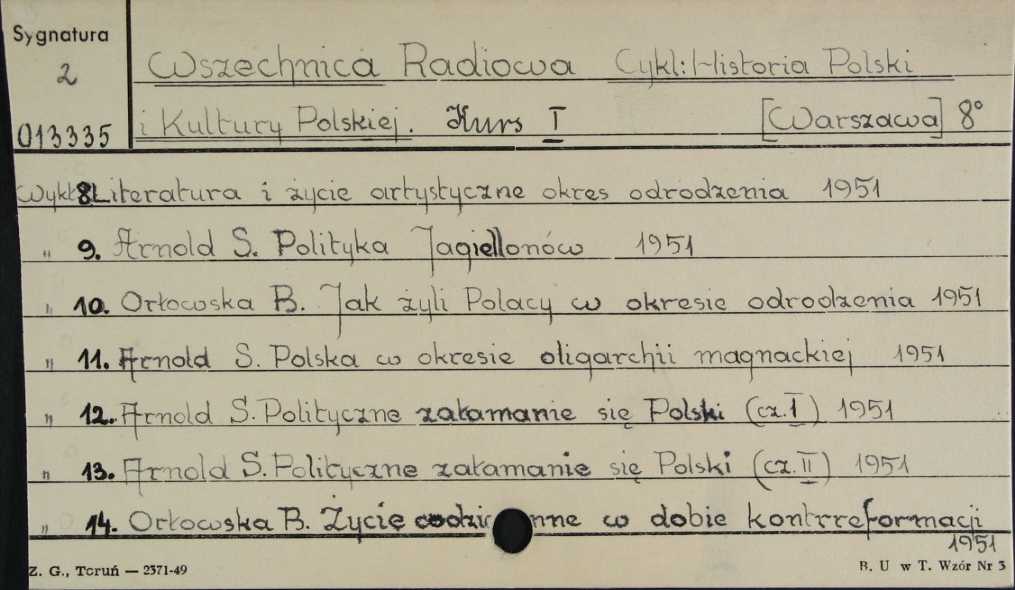 Sygnatura
2
013335
Wszechnica Radiowa Cykl: Historia Polski
i Kultury Polskiej. Kurs I [Warszawa] 8°
Wykł. 8. Literatura i życie artystyczne okres odrodzenia 1951
" 9. Arnold S. Polityka Jagiellonów 1951
" 10. Orłowska B. Jak żyli Polacy w okresie odrodzenia 1951
" 11. Arnold S. Polska w okresie oligarchii magnackiej 1951
" 12. Arnold S. Polityczne załamanie się Polski (cz. I) 1951
" 13. Arnold S. Polityczne załamanie się Polski (cz. II) 1951
" 14. Orłowska B. Życie codzienne w dobie kontrreformacji
1951
Z. G., Toruń — 2371-49 B. U w T. Wzór Nr 3